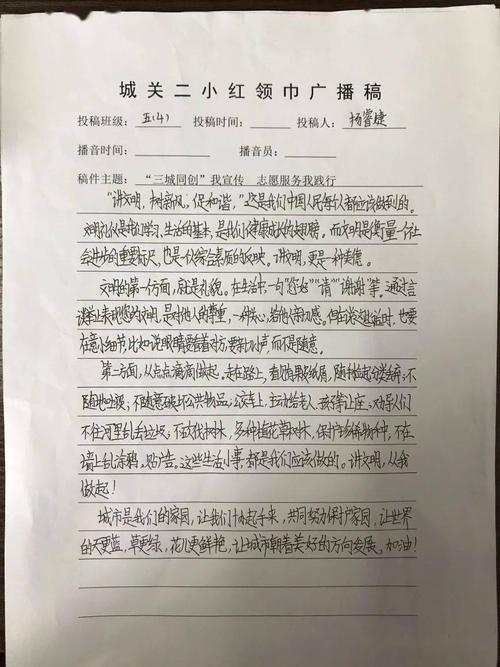 城关二小红领巾广播稿
投稿班级：五(4) 投稿时间： 投稿人：杨睿婕
播音时间： 播音员：
稿件主题：“三城同创”我宣传 志愿服务我践行
“讲文明，树新风，促和谐。”这是我们中国人民每个人都应该做到的。
文明礼仪是我们学习、生活的基本，是我们健康成长的翅膀，而文明是衡量一个社
会进步的重要标尺，也是个人综合素质的反映。讲文明，更是一种美德。
文明的第一方面，就是礼貌。在生活中一句“您好”“请”“谢谢”等。通过言
语举止表现您的文明，是对他人的尊重，一种关心，给他人亲切感。但在说这些话时，也要
在意小细节，比如说眼睛要看着对方，要轻小声，而不是随意。
第二方面，从点点滴滴做起。走在路上，看到瓜果纸屑，随手捡起分类丢弃；不
随地吐痰，不随意破坏公共物品；公交车上，主动给老人、孩子等让座；劝导人们
不往河里乱丢垃圾；不砍伐树木，多种植花草树木，保护珍稀物种，不在
墙上乱涂鸦，贴广告。这些生活小事，都是我们应该做的。讲文明，从我
做起！
城市是我们的家园，让我们携起手来，共同努力保护家园，让世界
的天更蓝，草更绿，花儿更鲜艳，让城市朝着美好的方向发展。加油！